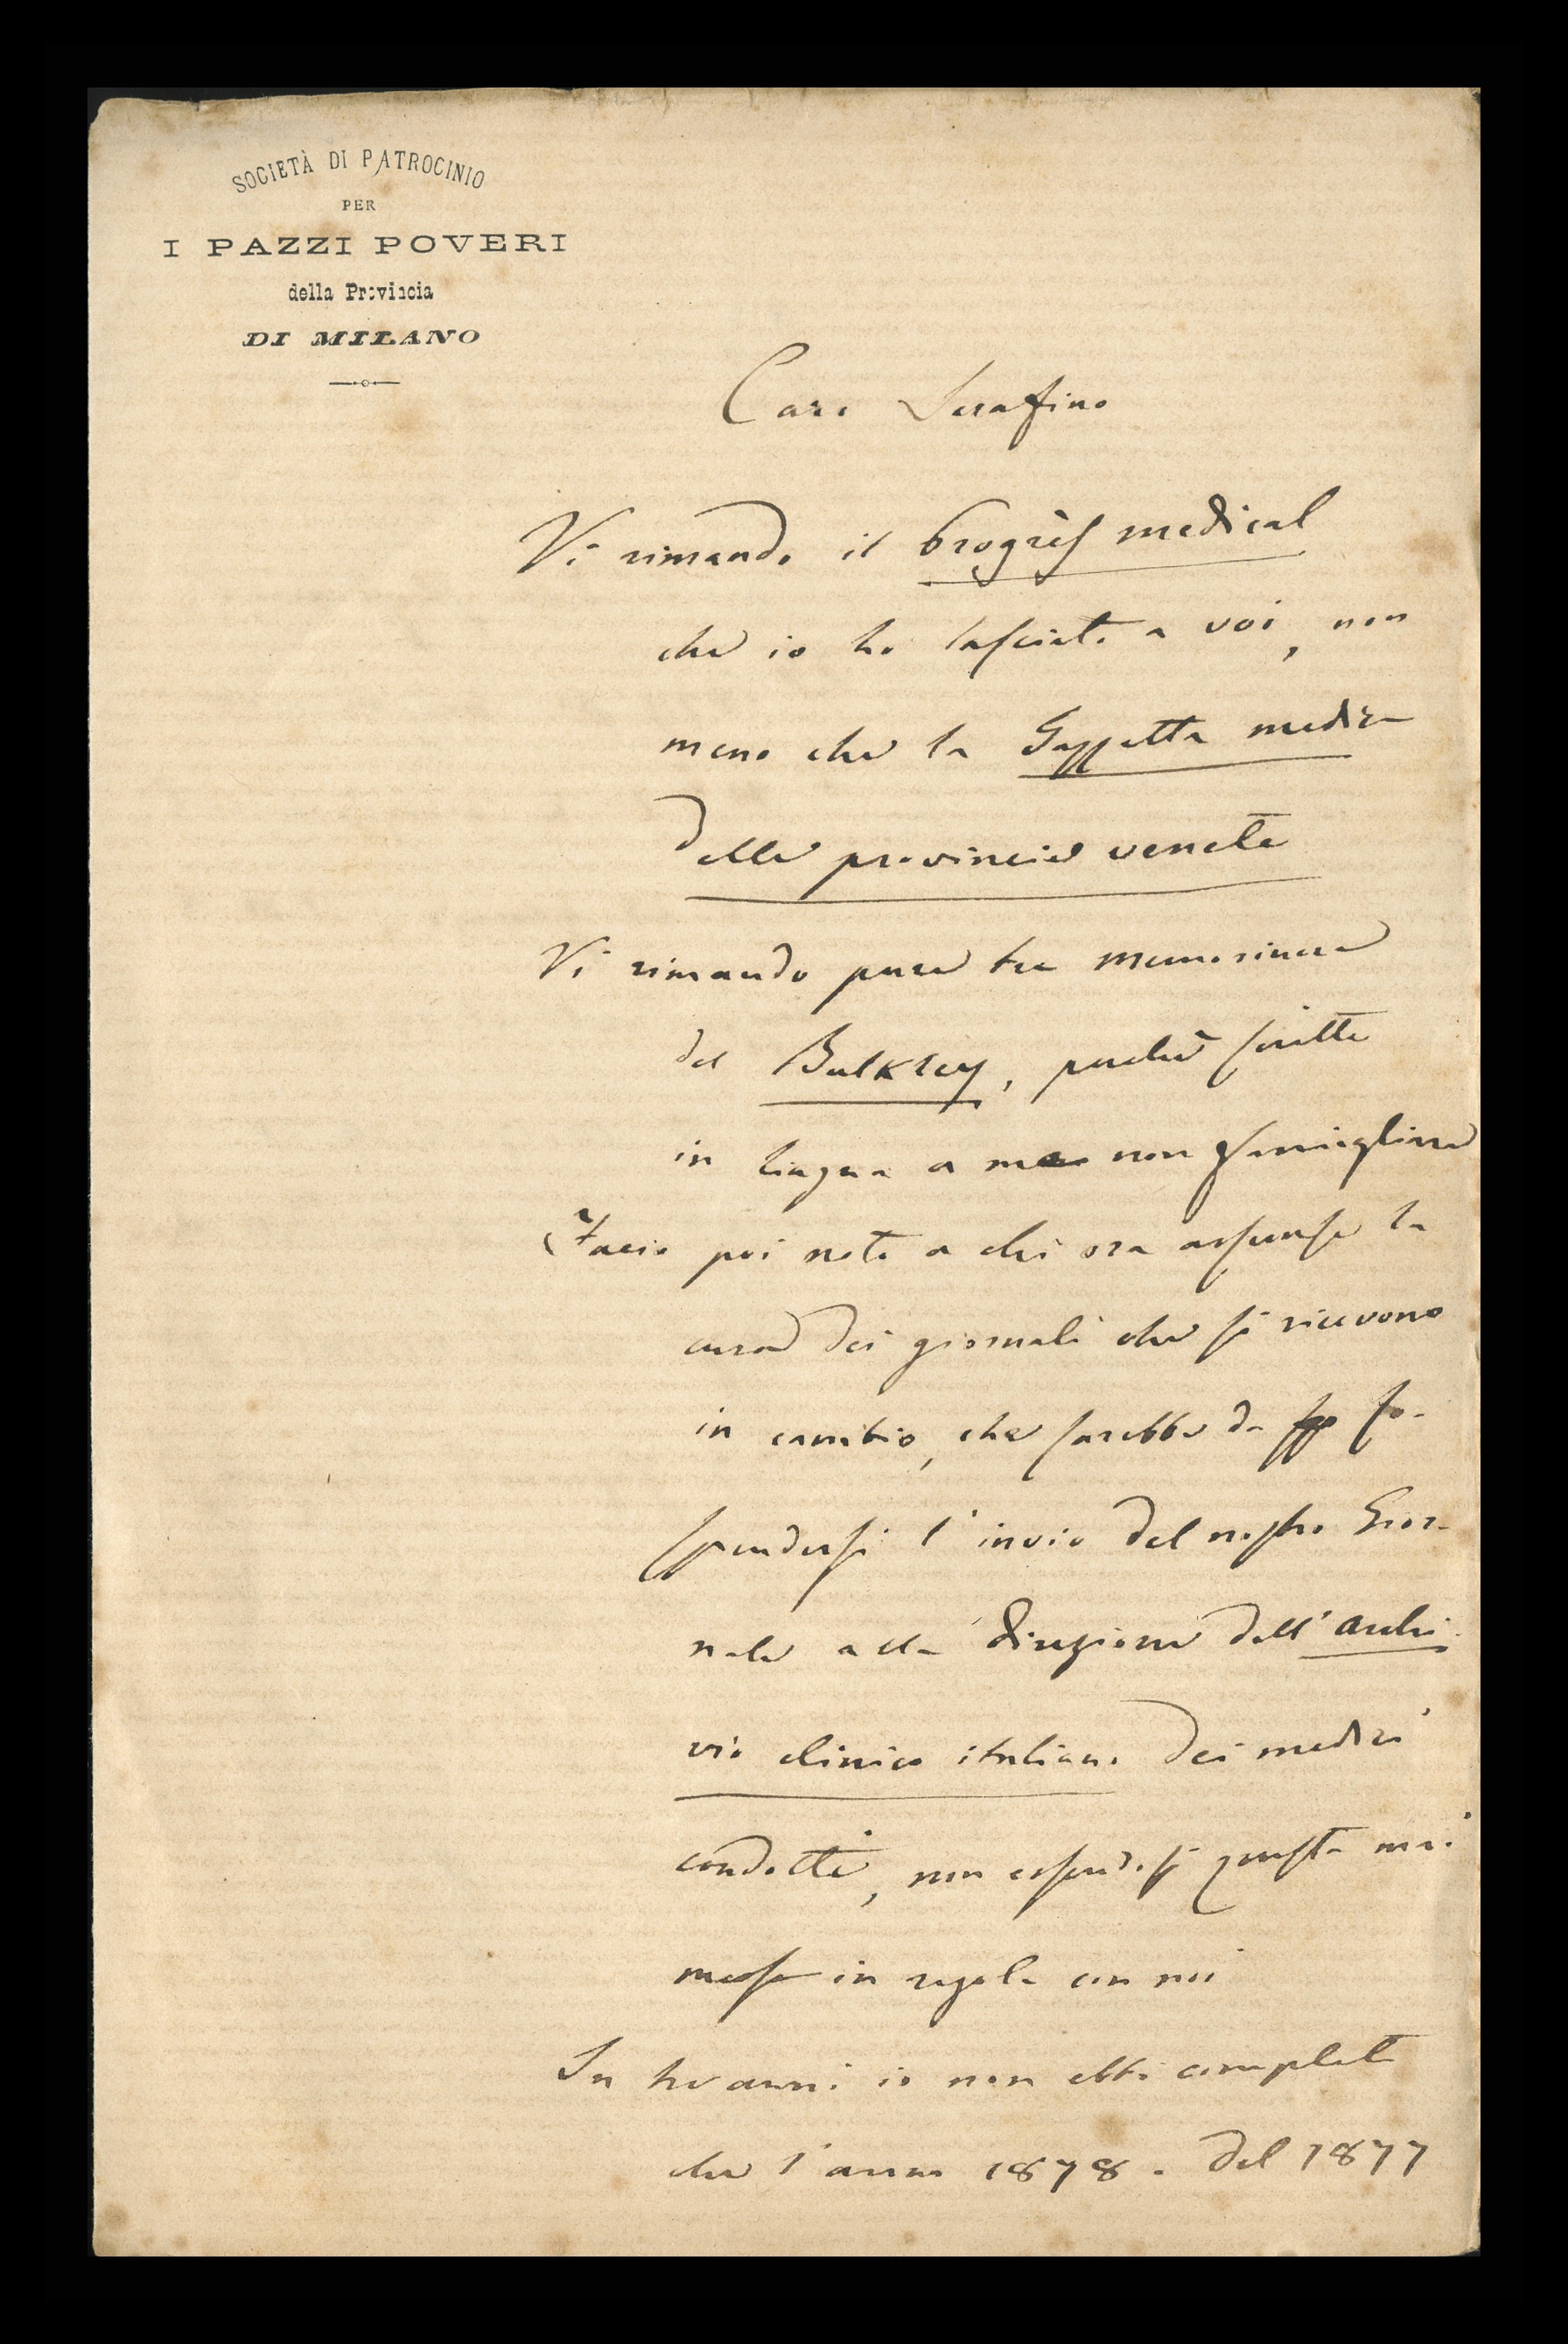 SOCIETÀ DI PATROCINIO
PER
I PAZZI POVERI
della Provincia
DI MILANO
Caro Serafino
Vi rimando il Progrès medical
che io ho lasciato a voi, non
meno che la Gazzetta medica
delle provincie venete
Vi rimando pure tre memorie
del Bulkley, perchè scritte
in lingua a me non famigliare
Faccio poi noto a chi ora assunse la
cura dei giornali che si ricevono
in cambio, che sarebbe da so-
spendersi l'invio del nostro Gior-
nale alla direzione dell'Archi-
vio clinico italiano dei medici
condotti, non essendosi questa mai
messa in regola con noi
In tre anni io non ebbi completo
che l'anno 1878. Del 1877